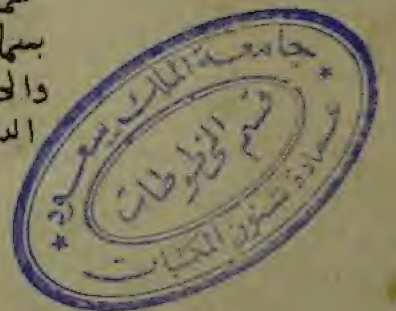 بسما
والح
الد
جامعة الملك سعود
قسم المخطوطات
عمادة شئون المكتبات